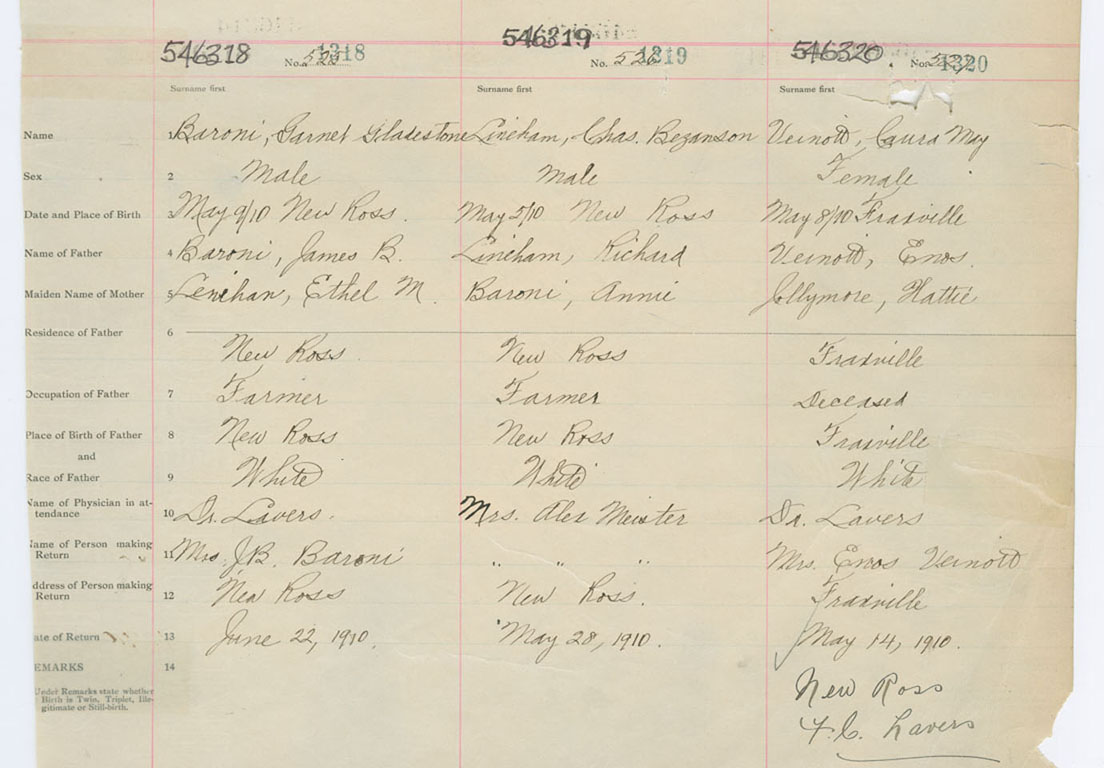 546318 No. 525 1318 546319 No. 526 1319 546320 No. 527 1320
Surname first Surname first Surname first
Name 1 Baroni, Garnet Gladestone Lineham, Chas. Bezanson Veinott, Laura May
Sex 2 Male Male Female
Date and Place of Birth 3 May 9/10 New Ross. May 5/10 New Ross May 8/10 Fraxville
Name of Father 4 Baroni, James B. Lineham, Richard Veinott, Enos.
Maiden Name of Mother 5 Lenehan, Ethel M. Baroni, Annie Jllymore, Hattie
Residence of Father 6
New Ross New Ross Fraxville
Occupation of Father 7 Farmer Farmer Deceased
Place of Birth of Father 8 New Ross New Ross Fraxville
and
Race of Father 9 White White White
Name of Physician in at-
tendance 10 Dr. Lavers. Mrs. Alex Meister Dr. Lavers
Name of Person making
Return 11 Mrs. J.B. Baroni " " " Mrs. Enos Veinott
ddress of Person making
Return 12 New Ross New Ross. Fraxville
ate of Return 13 June 22, 1910. May 28, 1910. May 14, 1910.
EMARKS 14
Under Remarks state whether
Birth is Twin, Triplet, Ille-
gitimate or Still-birth.
New Ross
F. C. Lavers